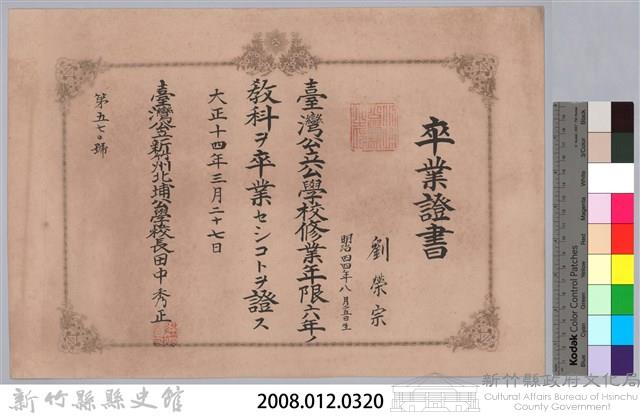 卒業證書
劉榮宗
明治四四年八月五日生
臺灣公立公學校修業年限六年ノ
教科ヲ卒業セシコトヲ證ス
大正十四年三月二十七日
臺灣公立新竹州北埔公學校長田中秀正
第五七〇號
Kodak Color Control Patches
Blue
Cyan
Green
Yellow
Red
Magenta
White
3/Color
Black
新竹縣縣史館
2008.012.0320
新竹縣政府文化局
Cultural Affairs Bureau of Hsinchu
County Government